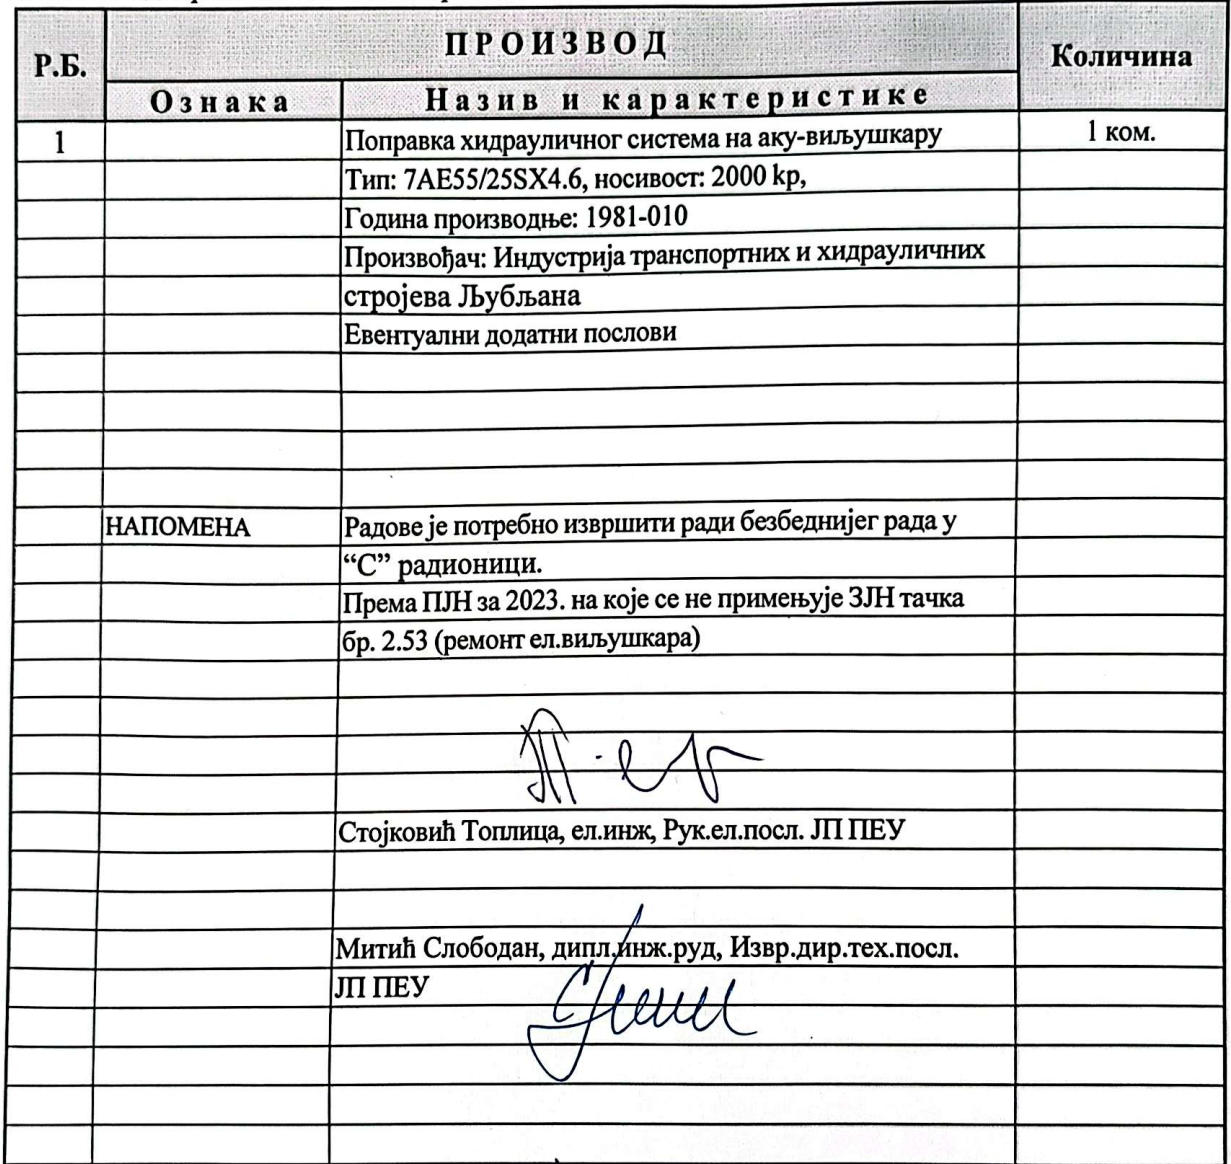 ПРОИЗВОД
Р.Б.
Количина
Ознака
Назив и карактеристике
1
Поправка хидрауличног система на аку-виљушкару
1 ком.
Тип: 7АЕ55/25SX4.6, носивост: 2000 kp,
Година производње: 1981-010
Произвођач: Индустрија транспортних и хидрауличних
стројева Љубљана
Евентуални додатни послови
НАПОМЕНА
Радове је потребно извршити ради безбеднијег рада у
“С” радионици.
Према ПЈН за 2023. на које се не примењује ЗЈН тачка
бр. 2.53 (ремонт ел.виљушкара)
Стојковић Топлица, ел.инж, Рук.ел.посл. ЈП ПЕУ
Митић Слободан, дипл.инж.руд, Извр.дир.тех.посл.
ЈП ПЕУ